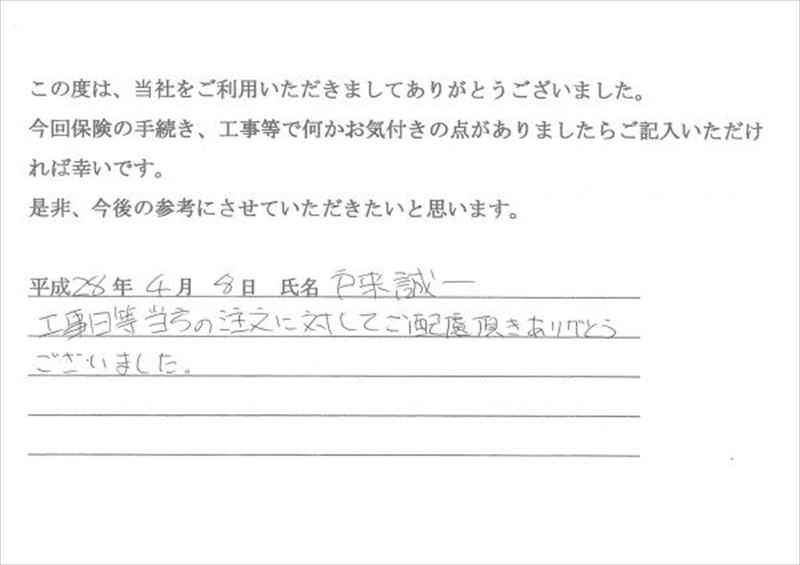 この度は、当社をご利用いただきましてありがとうございました。
今回保険の手続き、工事等で何かお気付きの点がありましたらご記入いただけ
れば幸いです。
是非、今後の参考にさせていただきたいと思います。
平成28年 4月 8日 氏名 戸来誠一
工事日等当方の注文に対してご配慮頂きありがとう
ございました。